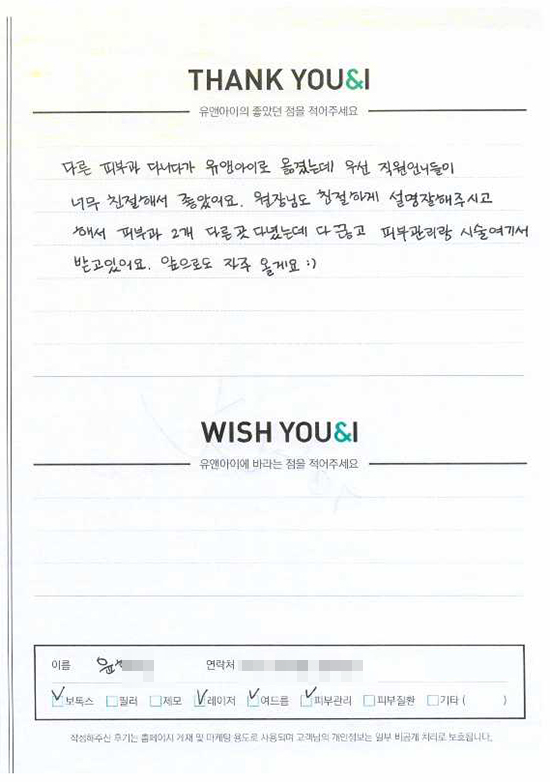 THANK YOU&I
유앤아이의 좋았던 점을 적어주세요
다른 피부과 다니다가 유앤아이로 옮겼는데 우선 직원언니들이
너무 친절해서 좋았어요. 원장님도 친절하게 설명잘해주시고
해서 피부과 2개 다른곳 다녔는데 다 끊고 피부관리랑 시술여기서
받고있어요. 앞으로도 자주 올게요 :)
WISH YOU&I
유앤아이에 바라는 점을 적어주세요
이름 윤 연락처
보톡스 필러 제모 레이저 여드름 피부관리 피부질환 기타 ( )
작성해주신 후기는 홈페이지 게재 및 마케팅 용도로 사용되며 고객님의 개인정보는 일부 비공개 처리로 보호됩니다.